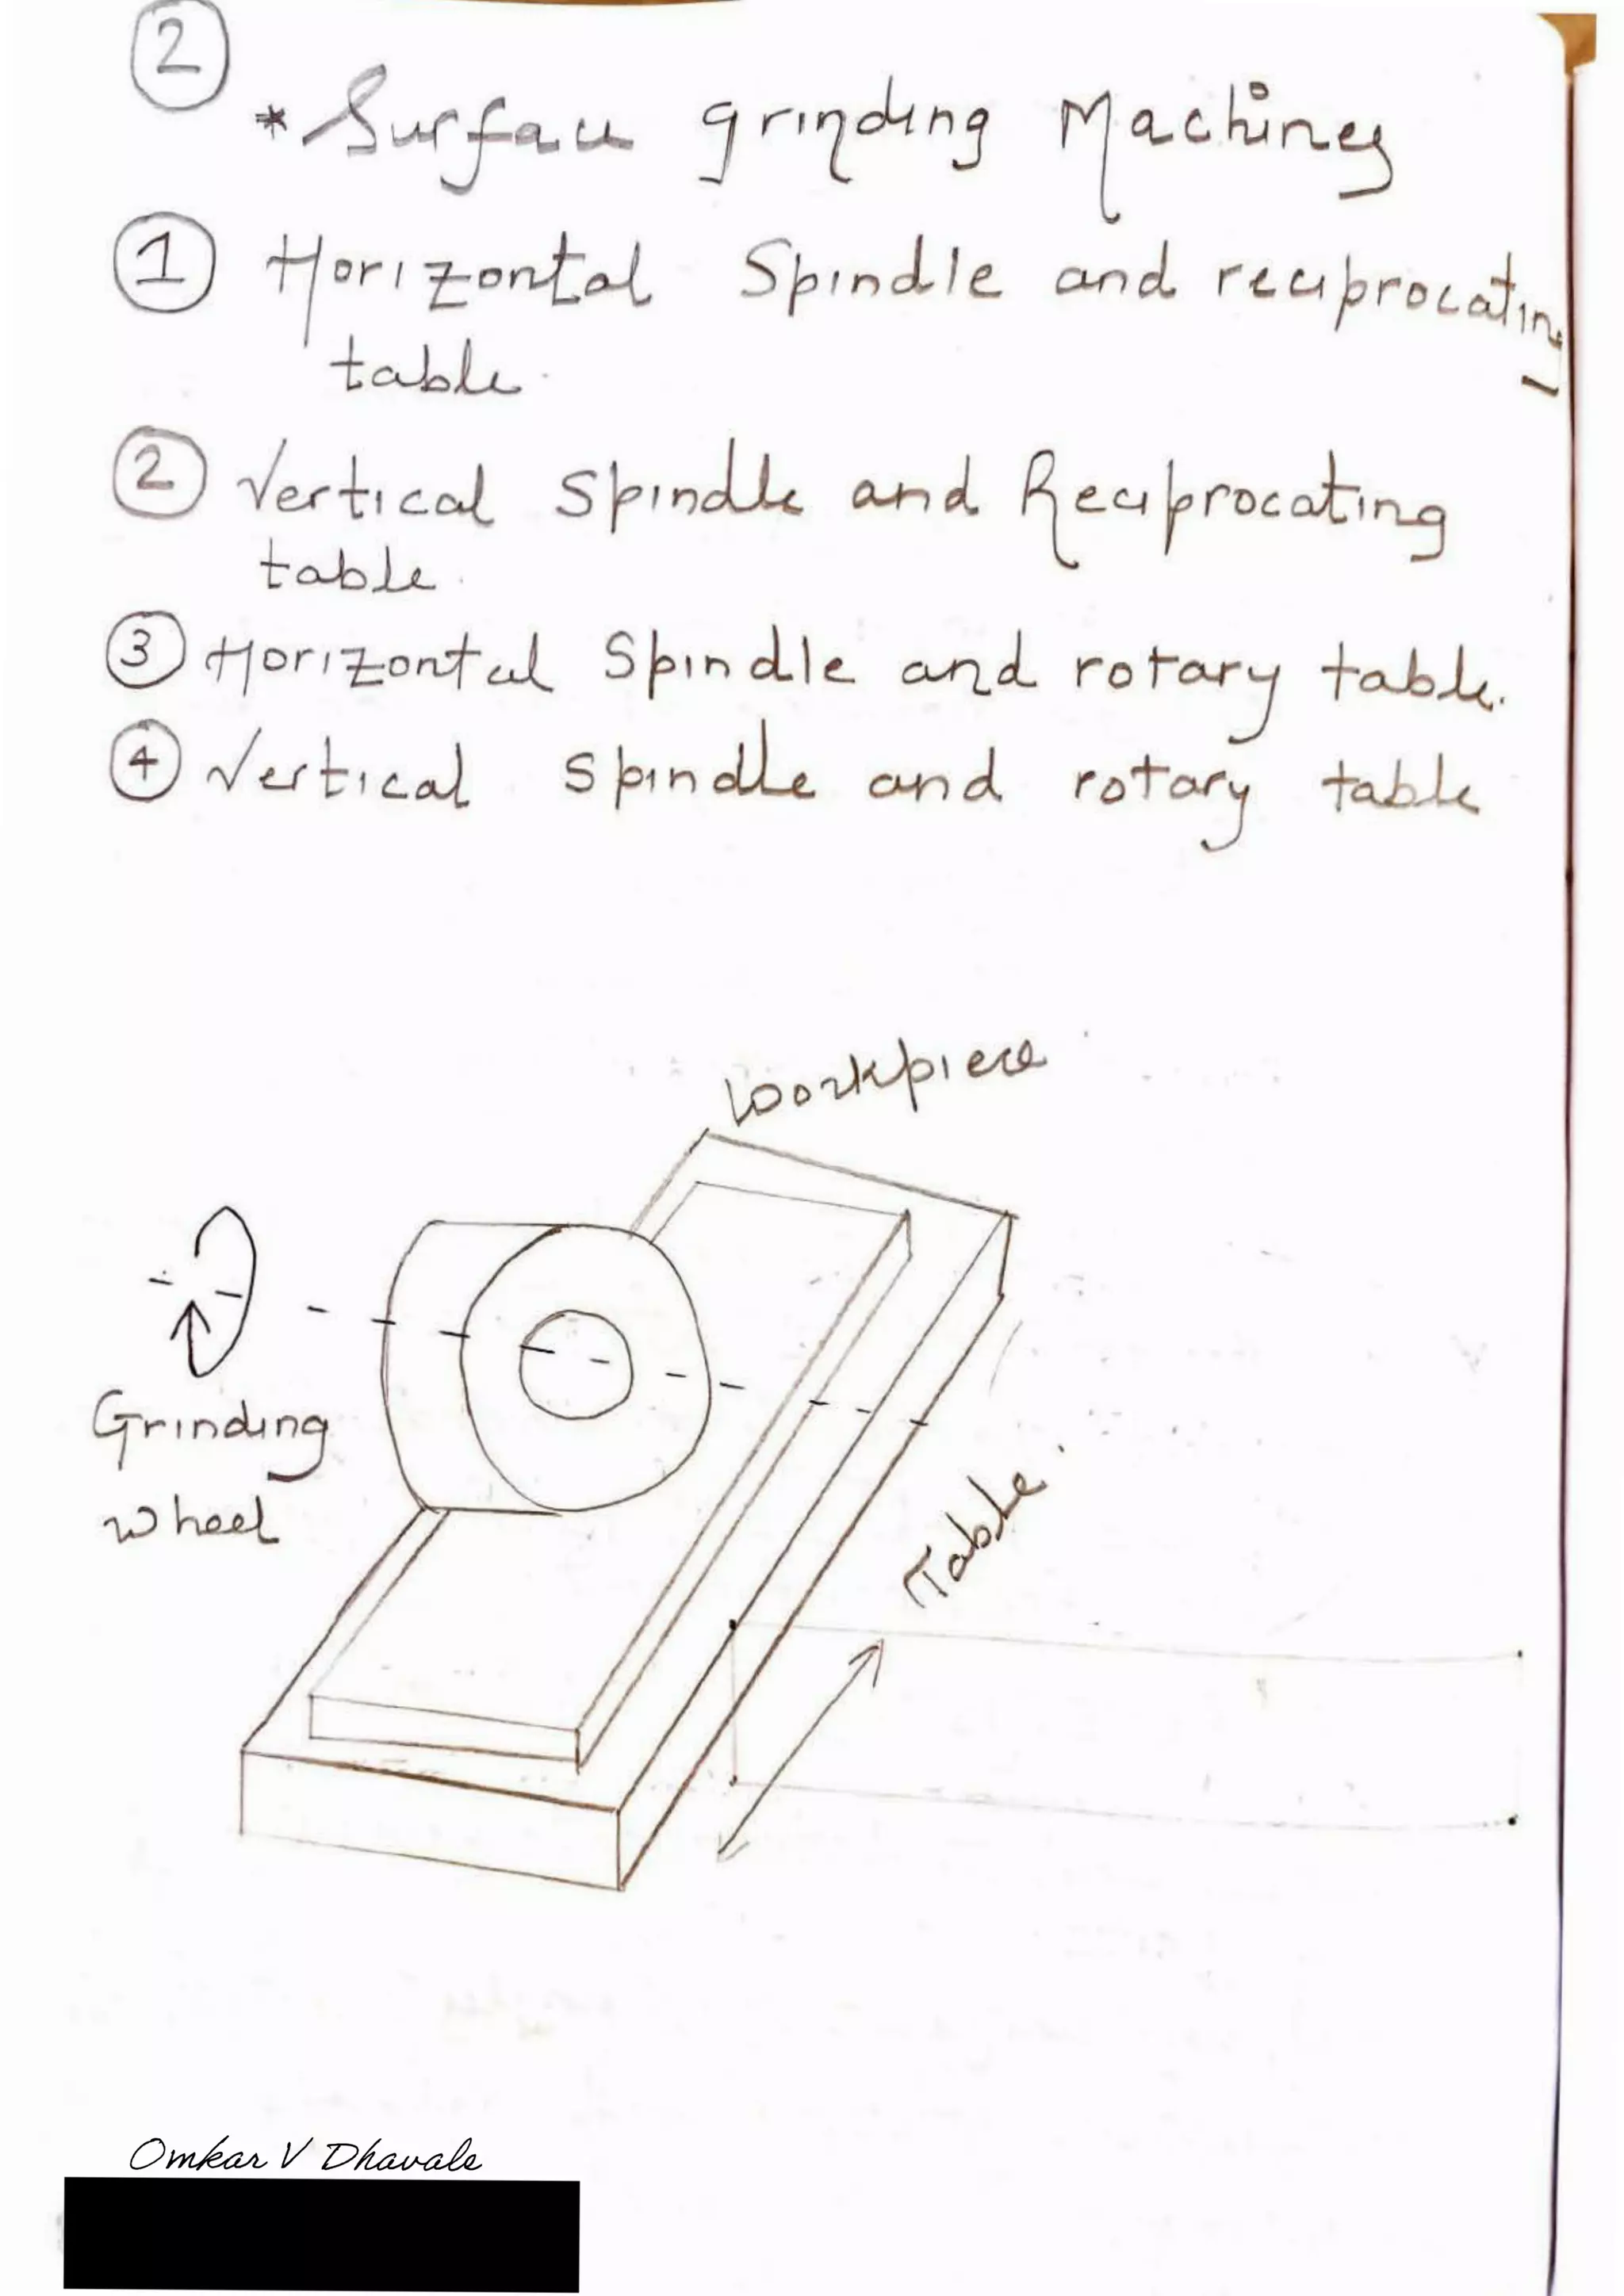 ②
* Surface grinding Machines
① Horizontal Spindle and reciprocating
table.
② Vertical Spindle and Reciprocating
table.
③ Horizontal Spindle and rotary table.
④ Vertical Spindle and rotary table
Workpiece
Grinding
wheel
Table.
Omkar V Dhavale